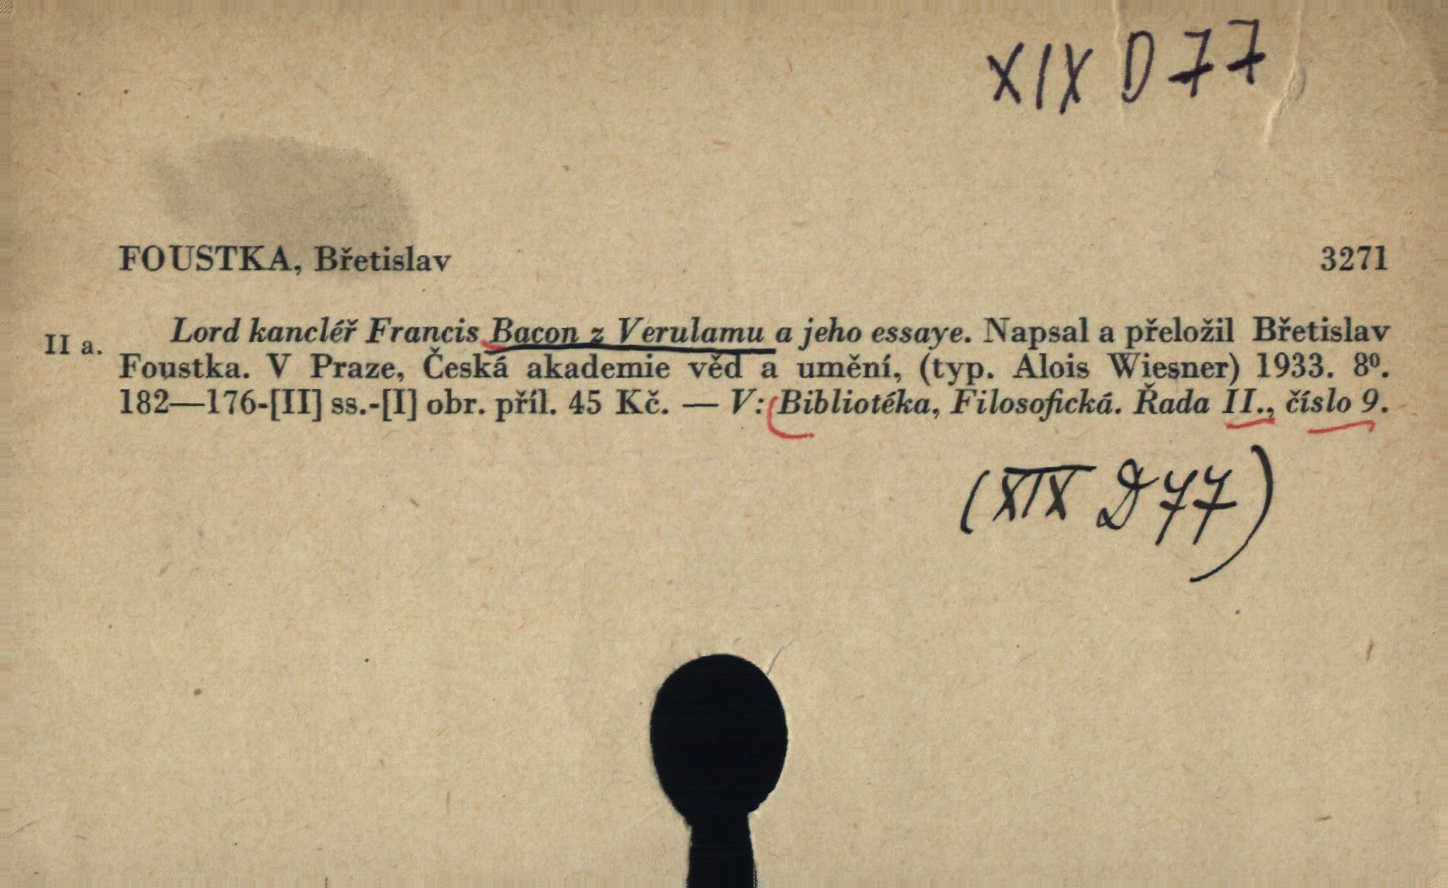 XIX D 77
FOUSTKA, Břetislav 3271
Lord kancléř Francis Bacon z Verulamu a jeho essaye. Napsal a přeložil Břetislav
II a.
Foustka. V Praze, Česká akademie věd a umění, (typ. Alois Wiesner) 1933. 8º.
182—176-[II] ss.-[I] obr. příl. 45 Kč. — V: Bibliotéka, Filosofická. Řada II., číslo 9.
(XIX D 77)